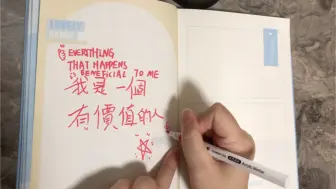 EVERYTHING
THAT HAPPENS
IS BENEFICIAL TO ME
我是一個
有價值的人